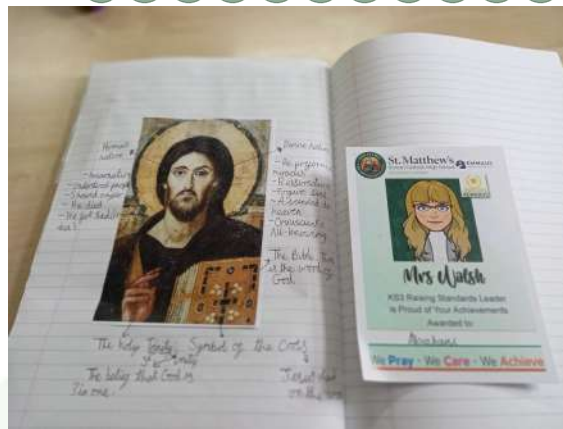 Human
nature
- Incarnation
- Understood people
- Showed anger
- He died
- He felt sad
Divine nature
- He performed
miracles
- Resurrection
- Forgave sins
- Ascended to
heaven
- Omniscient
All-knowing
The Bible. This
is the word of
God.
The Holy Trinity
3 unity
The belief that God is
3 in one.
Symbol of the Cross
Jesus died
on the
St. Matthew's
EMMAUS
Mrs Walsh
KS3 Raising Standards Leader
is Proud of Your Achievements
Awarded to:
We Pray - We Care - We Achieve